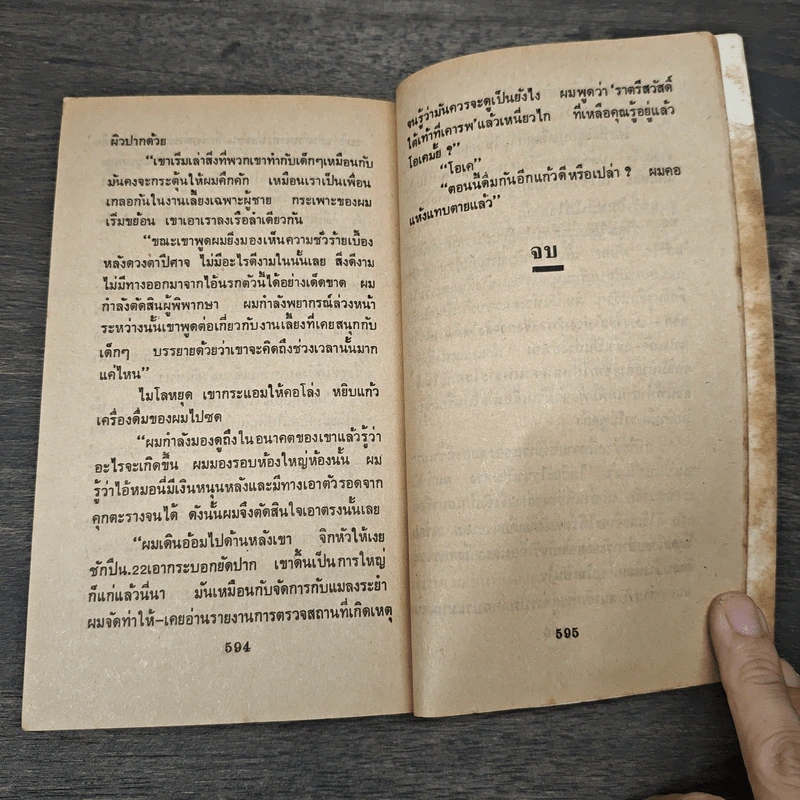 ผิวปากด้วย
“เขาเริ่มเล่าสิ่งที่พวกเขาทำกับเด็กๆเหมือนกับ
มันคงจะกระตุ้นให้ผมคึกคัก เหมือนเราเป็นเพื่อน
เกลอกันในงานเลี้ยงเฉพาะผู้ชาย กระเพาะของผม
เริ่มขย้อน เขาเอาเราลงเรือลำเดียวกัน
“ขณะเขาพูดผมยิ่งมองเห็นความชั่วร้ายเบื้อง
หลังดวงตาปีศาจ ไม่มีอะไรดีงามในนั้นเลย สิ่งดีงาม
ไม่มีทางออกมาจากไอ้นรกตัวนี้ได้อย่างเด็ดขาด ผม
กำลังตัดสินผู้พิพากษา ผมกำลังพยากรณ์ล่วงหน้า
ระหว่างนั้นเขาพูดต่อเกี่ยวกับงานเลี้ยงที่เคยสนุกกับ
เด็กๆ บรรยายด้วยว่าเขาจะคิดถึงช่วงเวลานั้นมาก
แค่ไหน”
ไมโลหยุด เขากระแอมให้คอโล่ง หยิบแก้ว
เครื่องดื่มของผมไปซด
“ผมกำลังมองดูถึงในอนาคตของเขาแล้วรู้ว่า
อะไรจะเกิดขึ้น ผมมองรอบห้องใหญ่ห้องนั้น ผม
รู้ว่าไอ้หมอนี่มีเงินหนุนหลังและมีทางเอาตัวรอดจาก
คุกตะรางจนได้ ดังนั้นผมจึงตัดสินใจเอาตรงนั้นเลย
“ผมเดินอ้อมไปด้านหลังเขา จิกหัวให้เงย
ชักปืน.22เอากระบอกยัดปาก เขาดิ้นเป็นการใหญ่
ก็แก่แล้วนี่นา มันเหมือนกับจัดการกับแมลงระยำ
ผมจัดท่าให้–เคยอ่านรายงานการตรวจสถานที่เกิดเหตุ
594
จนรู้ว่ามันควรจะดูเป็นยังไง ผมพูดว่า‘ราตรีสวัสดิ์
ใต้เท้าที่เคารพ’แล้วเหนี่ยวไก ที่เหลือคุณรู้อยู่แล้ว
โอเคมั้ย ?”
“โอเค”
“ตอนนี้ดื่มกันอีกแก้วดีหรือเปล่า ? ผมคอ
แห้งแทบตายแล้ว”
จบ
595